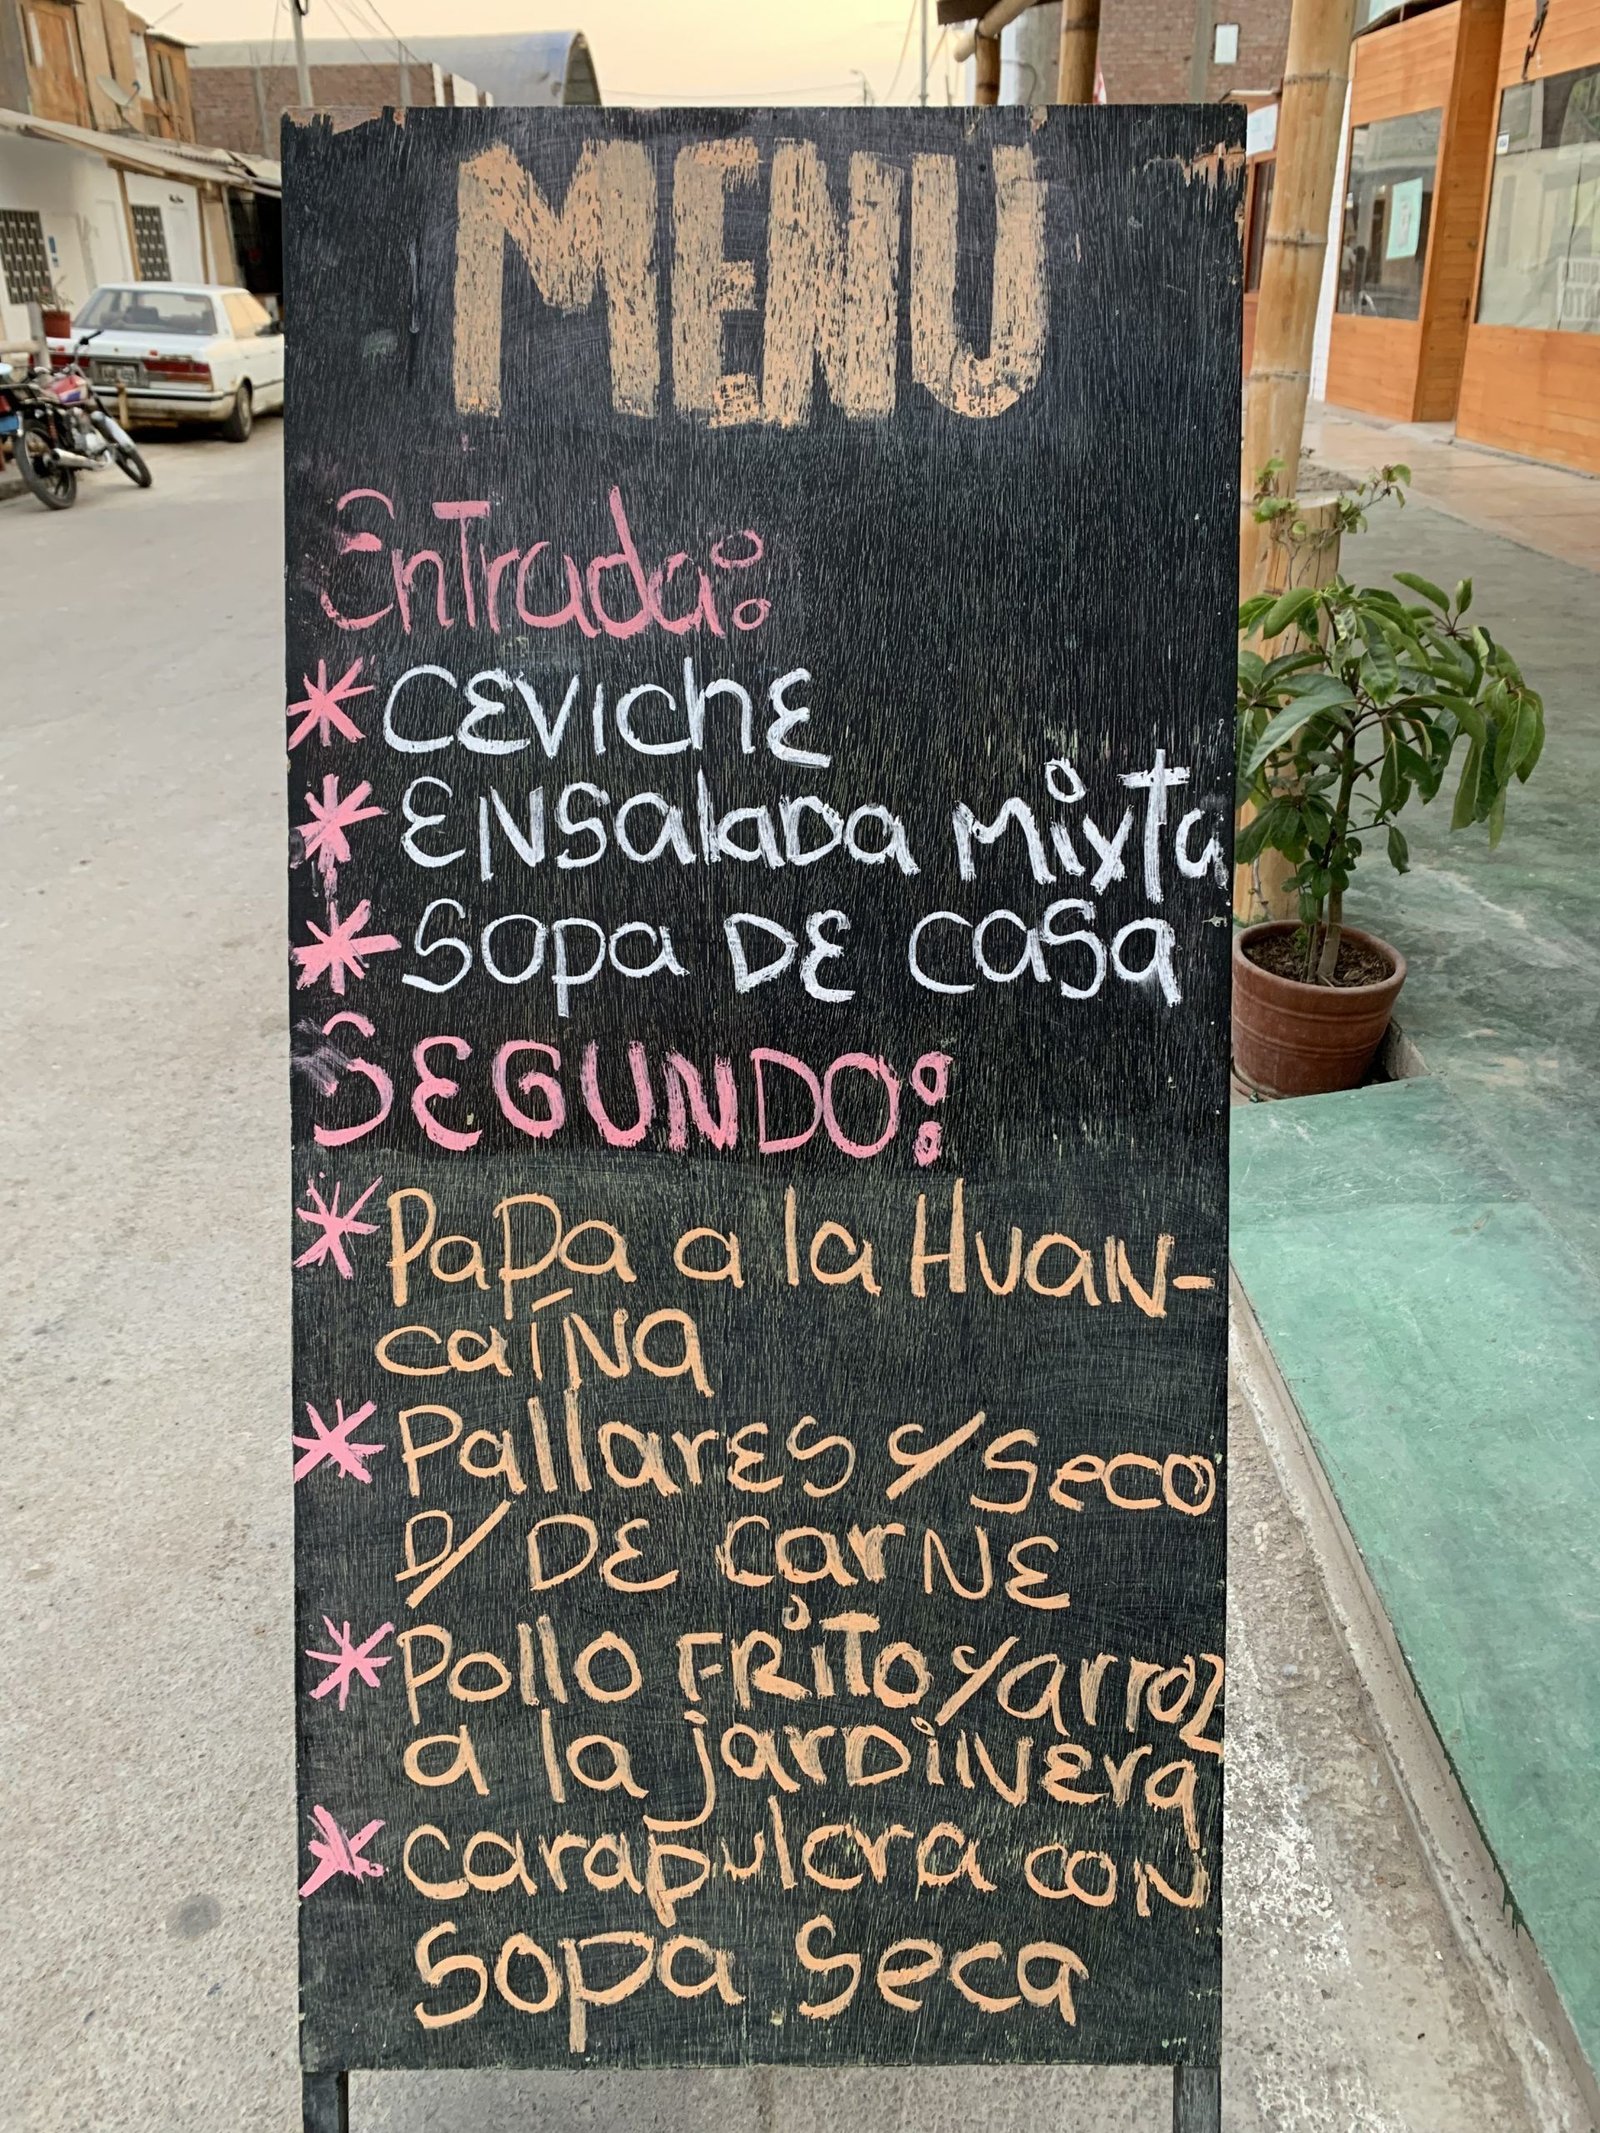 MENU
Entrada:
* CEVICHE
* ENSalaDa Mixta
* Sopa DE casa
SEGUNDO:
* Papa a la Huan-
caína
* PallarES y/ Seco
D/ DE CarNE
* Pollo FRiTo y/arroz
a la jarDiNEra
* carapulcra con
Sopa Seca